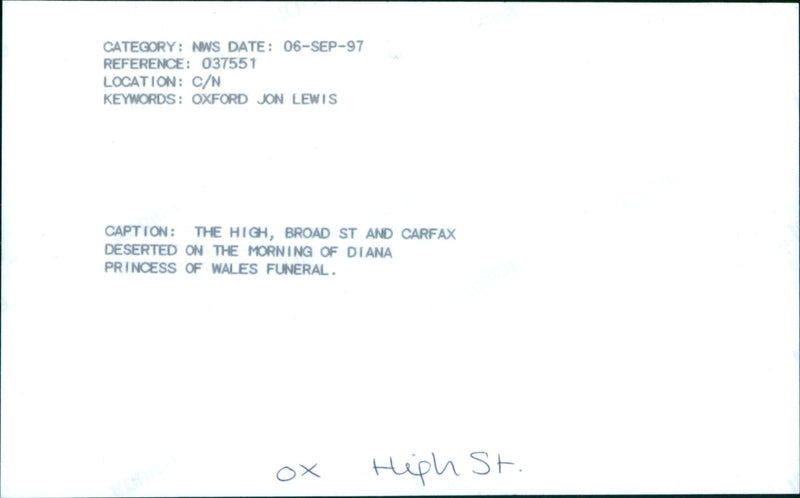 CATEGORY: NWS DATE: 06-SEP-97
REFERENCE: 037551
LOCATION: C/N
KEYWORDS: OXFORD JON LEWIS
CAPTION: THE HIGH, BROAD ST AND CARFAX
DESERTED ON THE MORNING OF DIANA
PRINCESS OF WALES FUNERAL.
OX High St.